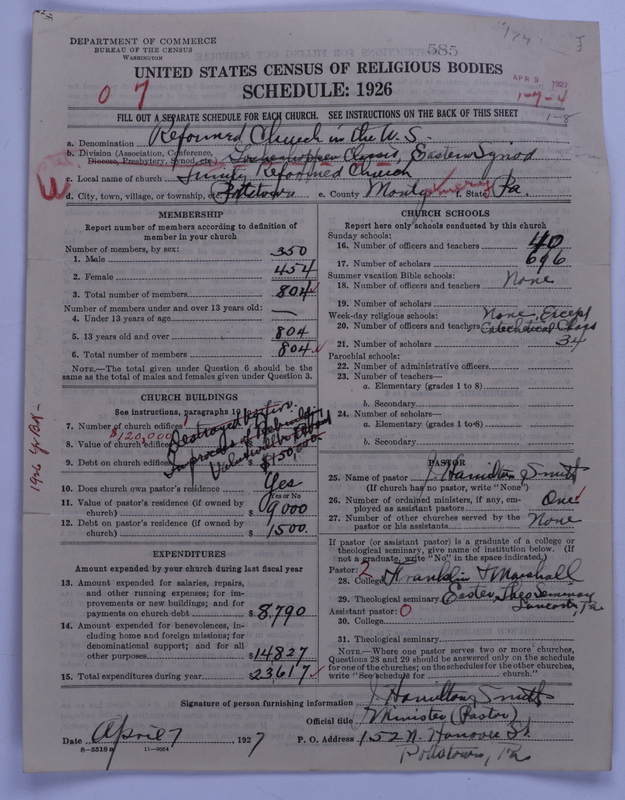 DEPARTMENT OF COMMERCE
BUREAU OF THE CENSUS
WASHINGTON
585
UNITED STATES CENSUS OF RELIGIOUS BODIES
SCHEDULE: 1926
APR 9 1927
0 7
1-7-4
1-8
FILL OUT A SEPARATE SCHEDULE FOR EACH CHURCH. SEE INSTRUCTIONS ON THE BACK OF THIS SHEET
a. Denomination Reformed Church in the U.S.
b. Division (Association, Conference, Diocese, Presbytery, Synod, etc.) Classis, Eastern Synod
c. Local name of church Trinity Reformed Church
d. City, town, village, or township, etc. Pottstown e. County Montgomery f. State Pa.
MEMBERSHIP
Report number of members according to definition of member in your church
Number of members, by sex:
1. Male 350
2. Female 454
3. Total number of members 804
Number of members under and over 13 years old:
4. Under 13 years of age —
5. 13 years old and over 804
6. Total number of members 804
NOTE.—The total given under Question 6 should be the same as the total of males and females given under Question 3.
CHURCH BUILDINGS
See instructions, paragraphs 10
7. Number of church edifices 1
Destroyed by fire.
8. Value of church edifices $120,000
In process of Rebuilding
9. Debt on church edifices
$150,000
10. Does church own pastor's residence Yes
Yes or No
11. Value of pastor's residence (if owned by church) $ 9000
12. Debt on pastor's residence (if owned by church) $ 1500
1926 Yr Bk-
EXPENDITURES
Amount expended by your church during last fiscal year
13. Amount expended for salaries, repairs, and other running expenses; for improvements or new buildings; and for payments on church debt $ 8,790
14. Amount expended for benevolences, including home and foreign missions; for denominational support; and for all other purposes $ 14827
15. Total expenditures during year $ 23617
CHURCH SCHOOLS
Report here only schools conducted by this church
Sunday schools:
16. Number of officers and teachers 40
17. Number of scholars 696
Summer vacation Bible schools:
18. Number of officers and teachers None
19. Number of scholars
Week-day religious schools: None, Except
20. Number of officers and teachers Catechetical Class
21. Number of scholars 34
Parochial schools:
22. Number of administrative officers
23. Number of teachers—
a. Elementary (grades 1 to 8)
b. Secondary
24. Number of scholars—
a. Elementary (grades 1 to 8)
b. Secondary
PASTOR
25. Name of pastor J. Hamilton Smith
(If church has no pastor, write "None")
26. Number of ordained ministers, if any, employed as assistant pastors One
27. Number of other churches served by the pastor or his assistants None
If pastor (or assistant pastor) is a graduate of a college or theological seminary, give name of institution below. (If not a graduate, write "No" in the space indicated.)
Pastor: 2
28. College Franklin & Marshall
29. Theological seminary Eastern Theo Seminary
Lancaster, Pa
Assistant pastor: 0
30. College
31. Theological seminary
NOTE.—Where one pastor serves two or more churches, Questions 28 and 29 should be answered only on the schedule for one of the churches; on the schedules for the other churches, write "See schedule for church."
Signature of person furnishing information J. Hamilton Smith
Official title Minister (Pastor)
Date April 7, 1927 P. O. Address 152 N. Hanover St.
8-5518a 11-9054
Pottstown, Pa